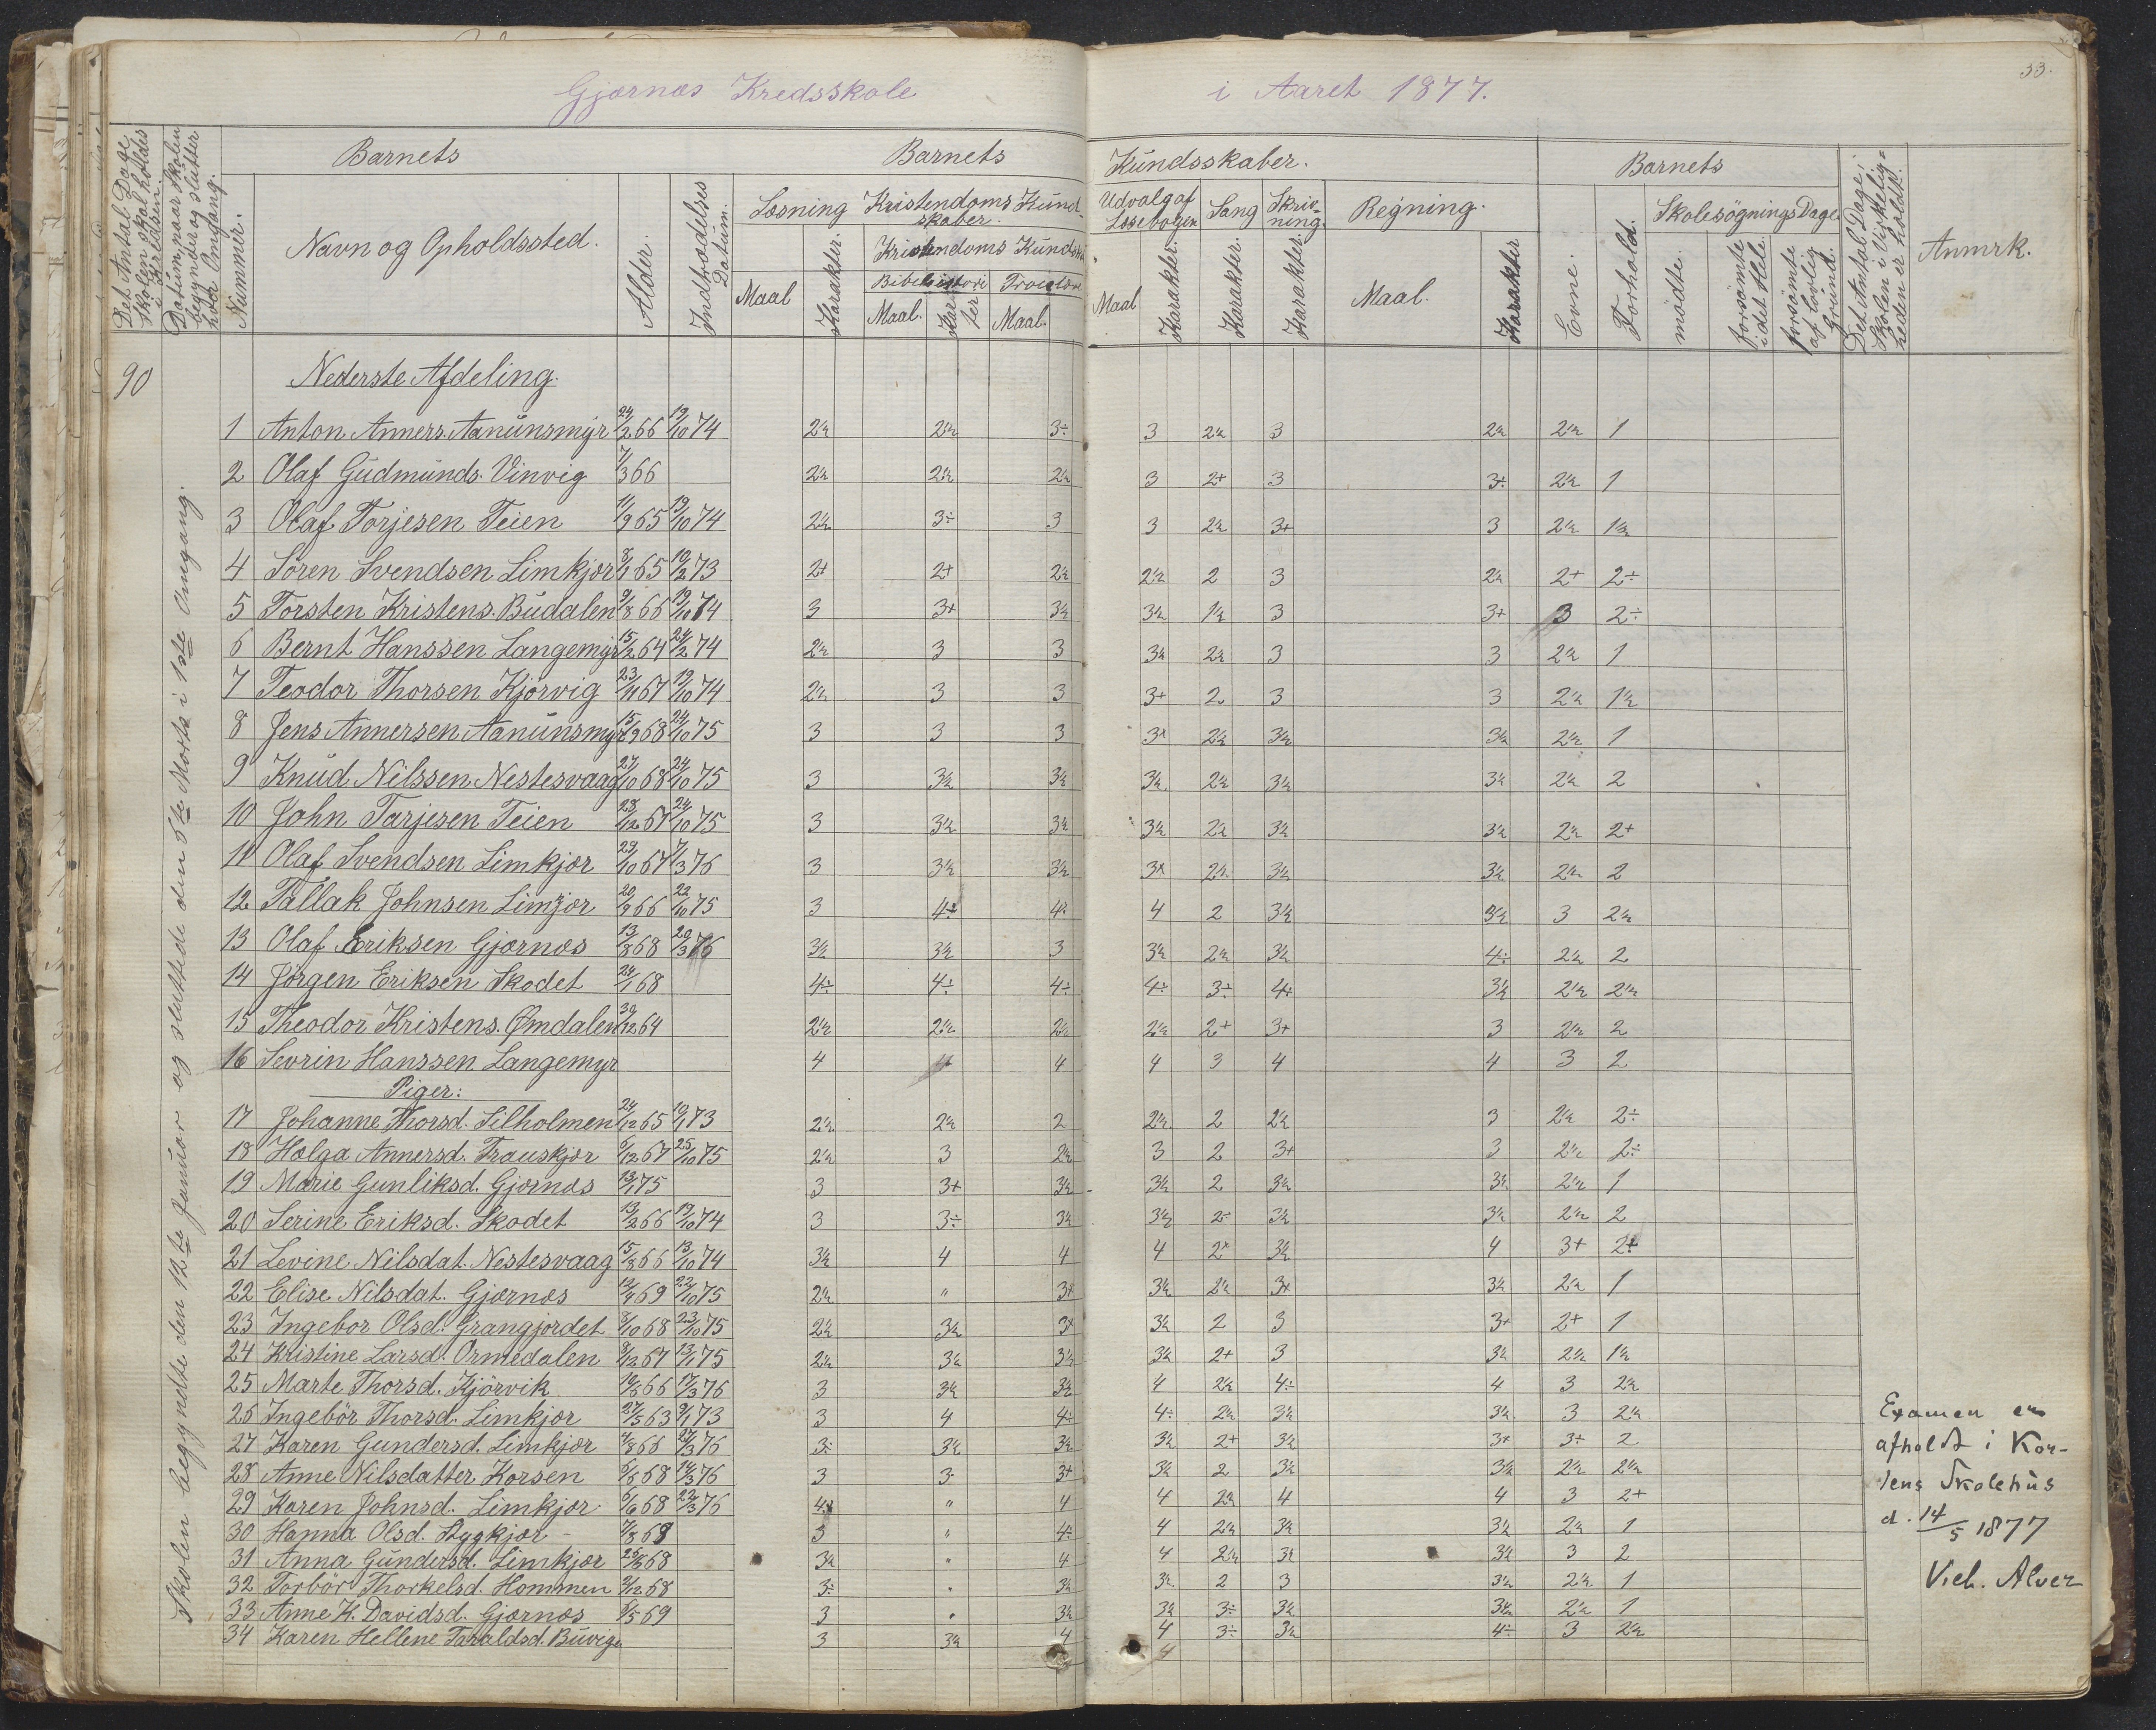 Gjærnæs Kredsskole i Aaret 1877.
33.
Det Antal Dage Skolen skal holdes i Kredsen.
Datum, naar Skolen begynder og slutter hver Omgang.
Barnets
Nummer.
Navn og Opholdssted.
Alder.
Indtrædelses Datum.
Barnets Kundsskaber.
Læsning
Maal
Karakter.
Kristendoms Kundskaber.
Kristendoms Kundsk
Bibelhistori
Maal.
Karakter
Troeslære
Maal.
Udvalg af Læsebogen
Maal
Karakter.
Sang
Karakter.
Skrivning.
Karakter.
Regning.
Maal.
Karakter
Barnets
Evne.
Forhold.
SkolesøgningsDage
mødte.
forsømte i det Hele.
forsømte af lovlig Grund.
Det Antal Dage, Skolen i Virkeligheden er holdt.
Anmrk.
90
Skolen begyndte den 12te Januar og sluttede den 5te Marts i 1ste Omgang.
Nederste Afdeling.
1 Anton Anners. Aanunsmyr 24/2 66 19/10 74 2½ 2½ 3÷ 3 2½ 3 2½ 2½ 1
2 Olaf Gudmunds. Vinvig 7/3 66 2½ 2½ 2½ 3 2+ 3 3÷ 2½ 1
3 Olaf Torjesen Teien 11/9 65 19/10 74 2½ 3÷ 3 3 2½ 3+ 3 2½ 1½
4 Søren Svendsen Limkjær 8/1 65 10/2 73 2+ 2+ 2½ 2½ 2 3 2½ 2+ 2÷
5 Torsten Kristens. Budalen 9/8 66 19/10 74 3 3+ 3½ 3½ 1½ 3 3+ 3 2÷
6 Bernt Hanssen Langemyr 15/2 64 24/2 74 2½ 3 3 3½ 2½ 3 3 2½ 1
7 Teodor Thorsen Kjørvig 23/11 67 19/10 74 2½ 3 3 3+ 2 3 3 2½ 1½
8 Jens Annersen Aanunsmyr 15/9 68 24/10 75 3 3 3 3+ 2½ 3½ 3½ 2½ 1
9 Knud Nilssen Nestesvaag 27/10 68 24/10 75 3 3½ 3½ 3½ 2½ 3½ 3½ 2½ 2
10 John Tarjesen Teien 28/12 67 24/10 75 3 3½ 3½ 3½ 2½ 3½ 3½ 2½ 2+
11 Olaf Svendsen Limkjær 29/10 67 7/3 76 3 3½ 3½ 3+ 2½ 3½ 3½ 2½ 2
12 Tallak Johnsen Limjær 20/9 66 22/10 75 3 4÷ 4÷ 4 2 3½ 3½ 3 2½
13 Olaf Eriksen Gjærnæs 13/8 68 20/3 76 3½ 3½ 3 3½ 2½ 3½ 4÷ 2½ 2
14 Jørgen Eriksen Skodet 28/1 68 4÷ 4÷ 4÷ 4÷ 3÷ 4+ 3½ 2½ 2½
15 Theodor Kristens. Ømdalen 30/12 64 2½ 2½ 2½ 2½ 2+ 3+ 3 2½ 2
16 Sevrin Hanssen Langemyr 4 4 4 4 3 4 4 3 2
Piger:
17 Johanne Thorsd. Silholmen 24/12 65 10/1 73 2½ 2½ 2 2½ 2 2½ 3 2½ 2÷
18 Hælga Annersd. Trauskjær 6/12 67 25/10 75 2½ 3 2½ 3 2 3+ 3 2½ 2÷
19 Marie Gunliksd. Gjærnæs 13/1 75 3 3+ 3½ 3½ 2 3½ 3½ 2½ 1
20 Serine Eriksd. Skodet 13/2 66 19/10 74 3 3÷ 3½ 3½ 2÷ 3½ 3½ 2½ 2
21 Levine Nilsdat. Nestesvaag 15/8 66 13/10 74 3½ 4 4 4 2+ 3½ 4 3+ 2+
22 Elise Nilsdat. Gjærnæs 12/4 69 22/10 75 2½ " 3+ 3½ 2½ 3+ 3½ 2½ 1
23 Ingebor Olsd. Grangjordet 8/10 68 23/10 75 2½ 3½ 3+ 3½ 2 3 3+ 2+ 1
24 Kristine Larsd. Ormedalen 8/12 67 13/1 75 2½ 3½ 3½ 3½ 2+ 3 3½ 2½ 1½
25 Marte Thorsd. Kjørvik 19/6 66 17/3 76 3 3½ 3½ 4 2½ 4÷ 4 3 2½
26 Ingebør Thorsd. Limkjær 27/5 63 9/1 73 3 4 4÷ 4÷ 2½ 3½ 3½ 3 2½
27 Karen Gundersd. Limkjær 4/8 66 27/3 76 3÷ 3½ 3½ 3½ 2+ 3½ 3+ 3÷ 2
28 Anne Nilsdatter Korsen 6/6 68 14/3 76 3 3 3+ 3½ 2 3½ 3½ 2½ 2½
29 Karen Johnsd. Limkjær 6/6 68 22/3 76 4 " 4 4 2½ 4 4 3 2+
30 Hanna Olsd. Stygkjær 7/8 68 3 " 4÷ 4 2½ 3½ 3½ 2½ 1
31 Anna Gundersd. Limkjær 25/6 68 3½ " 4 4 2½ 3½ 3½ 3 2
32 Torbør Thorkelsd. Hommen 2/12 68 3÷ " 3½ 3½ 2 3 3½ 2½ 1
33 Anne K. Davidsd. Gjærnæs 5/5 69 3 " 3½ 3½ 3÷ 3½ 3½ 2½ 1
34 Karen Hellene Taraldsd. Buvige 3 3½ 4 4 3÷ 3½ 4÷ 3 2½
4
Examen er
afholdt i Kor-
sens Skolehus
d. 14/5 1877
Vieh. Alver